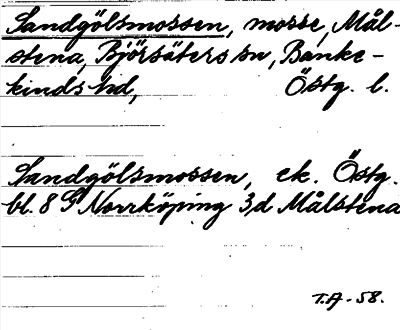 Sandgölsmossen, mosse, Mål-
stena, Björsäters sn, Banke-
kinds hd, Östg. l.
Sandgölsmossen, ek. Östg.
bl. 8 G Norrköping 3,d Målstena
T.A-58.